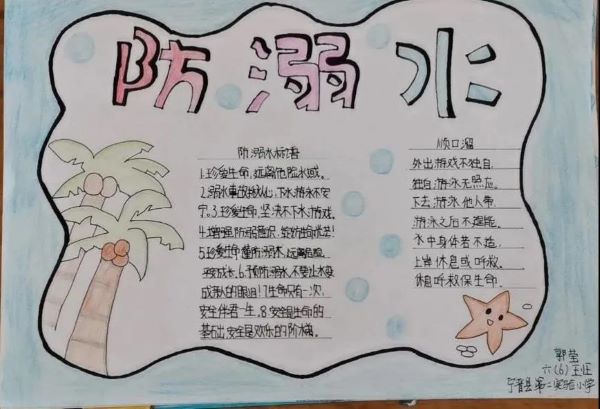 防溺水
防溺水标语
1.珍爱生命,远离危险水域。
2.溺水事故揪人心,下水游泳不安
宁。3.珍爱生命,坚决不下水游戏。
4.增强防溺意识,
5.珍爱生命谨防溺水,远离危险
平安成长。6.预防溺水,不要让水
成为的眼泪!7.生命只有一次!
安全伴君一生。8.安全是生命的
基础,安全是欢乐的阶梯。
顺口溜
外出游戏不独自,
独自游泳无照应。
下去游泳他人带,
游泳之后不逞能。
水中身体若不适,
上岸休息或呼救。
休息呼救保生命。
郭莹
六(6)王
宁晋县第二实验小学